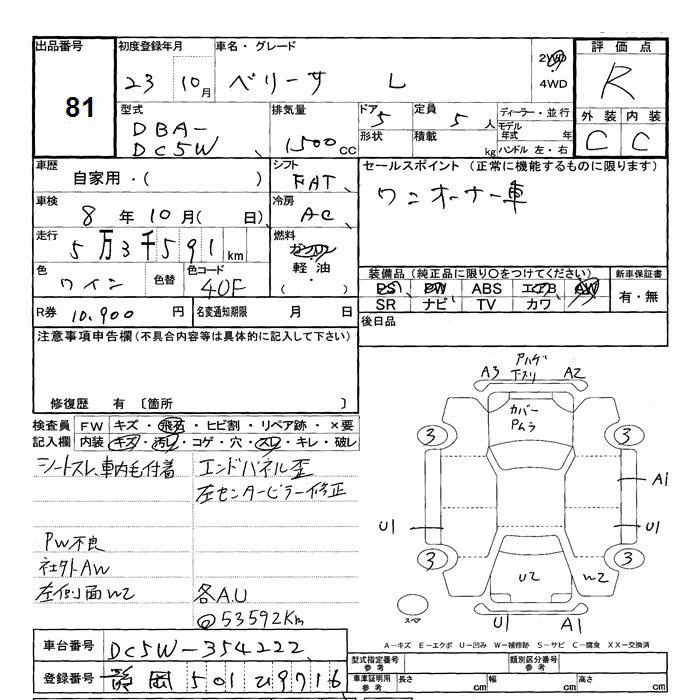 出品番号
81
初度登録年月
23 10月
車名・グレード
ベリーサ L
2WD
4WD
評価点
R
外装 内装
C C
型式
DBA-
DC5W
排気量
1500cc
ドア 5
形状
定員 5人
積載 kg
ディーラー・並行
モデル年式 年
ハンドル 左・右
車歴
自家用・( )
シフト
FAT
セールスポイント (正常に機能するものに限ります)
ワンオーナー車
車検
8年10月( 日)
冷房
AC
走行
5万3千591km
燃料
ガソリン
軽・油
( )
色
ワイン
色替
色コード
40F
装備品 (純正品に限り○をつけてください)
PS PW ABS エアB AW
SR ナビ TV カワ
新車保証書
有・無
R券 10,900円
名変通知期限 月 日
後日品
注意事項申告欄(不具合内容等は具体的に記入して下さい)
修復歴 有 〔箇所 〕
検査員記入欄
FW キズ・飛石・ヒビ割・リペア跡・×要
内装 キズ・汚れ・コゲ・穴・スレ・キレ・破レ
シートスレ、車内毛付着
エンドパネル歪
左センターピラー修正
PW不良
社外AW
左側面W2
各A.U
@53592Km
アハゲ
A3 下スリ A2
カバー
Pムラ
3
3
A1
U1
U1
3
3
U2
W2
スペア
U1 A1
A−キズ E−エクボ U−凹み W−補修跡 S−サビ C−腐食 XX−交換済
車台番号
DC5W-354222
型式指定番号
参考
類別区分番号
参考
登録番号
静岡501
車庫証明用
参考
長さ cm
幅 cm
高さ cm